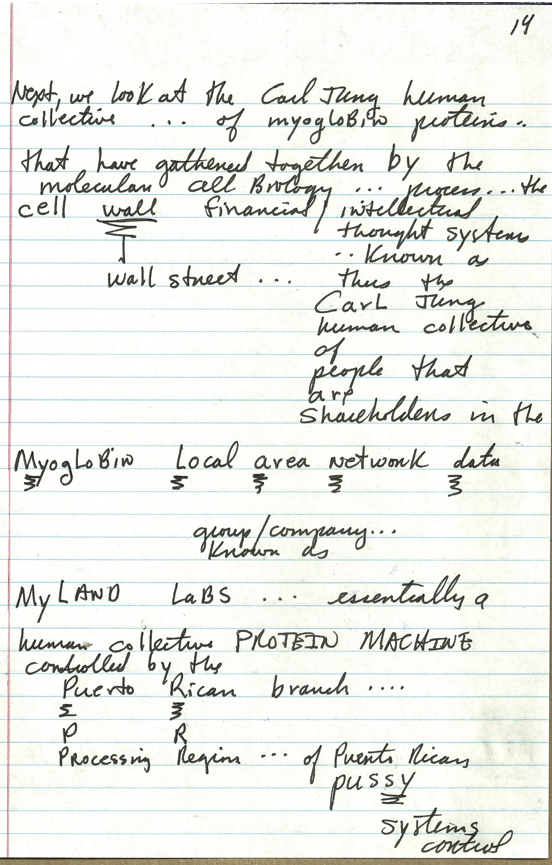 14
Next, we look at the Carl Jung human
collective ... of myogloBin proteins..
that have gathered together by the
molecular cell Biology ... process... the
cell wall financial / intellectual
thought systems
.. Known as
wall street ... thus the
Carl Jung
human collective
of
people that
are
shareholders in the
MyogloBin Local area Network data
group/company...
Known as
My LAND LaBS ... essentially a
human collective PROTEIN MACHINE
controlled by the
Puerto Rican branch ....
P R
Processing Region ... of Puerto Rican
pussy
systems
control